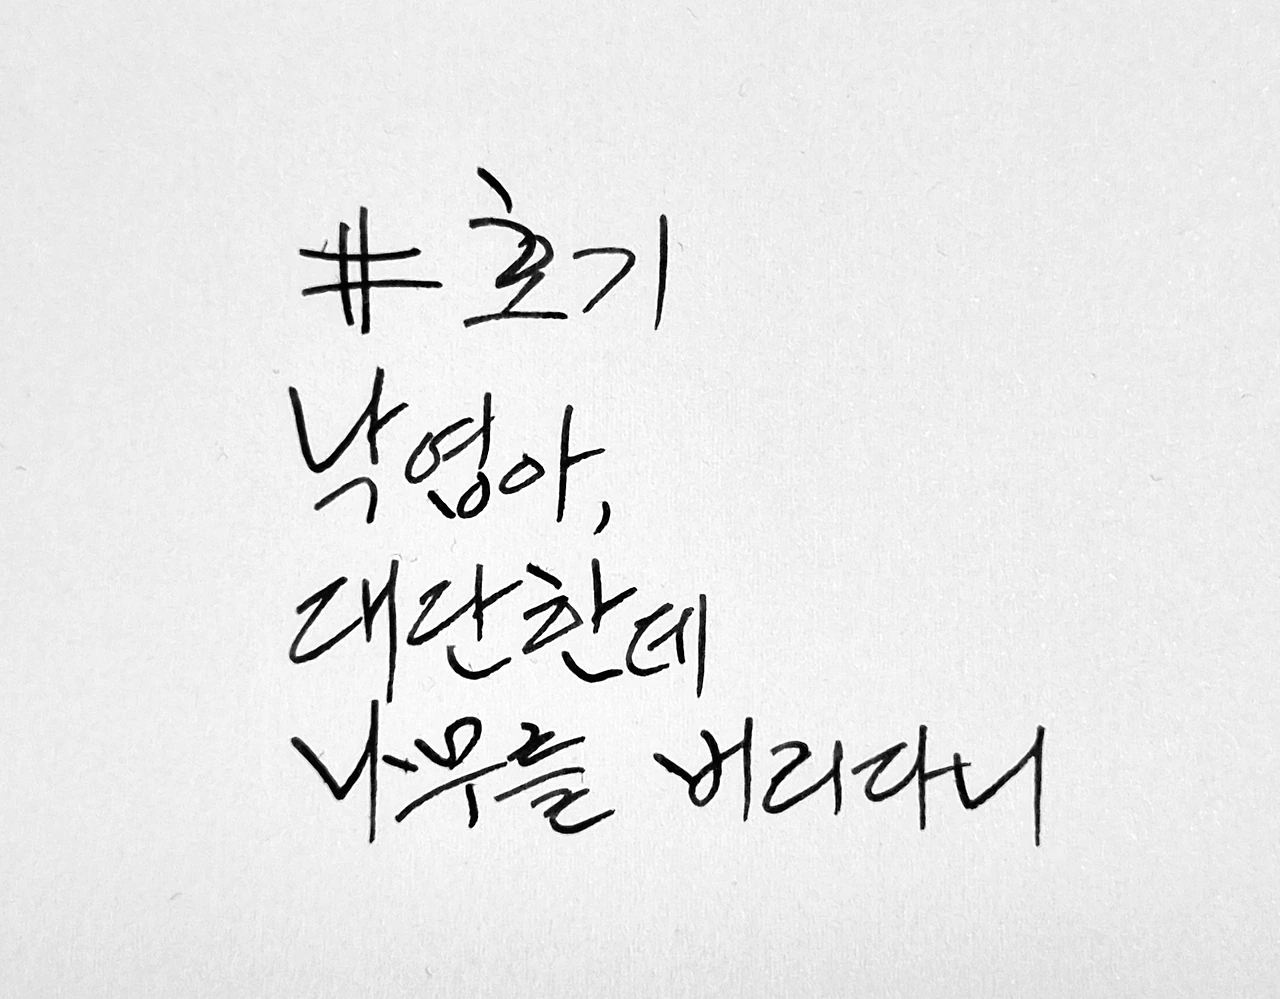 # 호기
낙엽아,
대단한데
나무를 버리다니